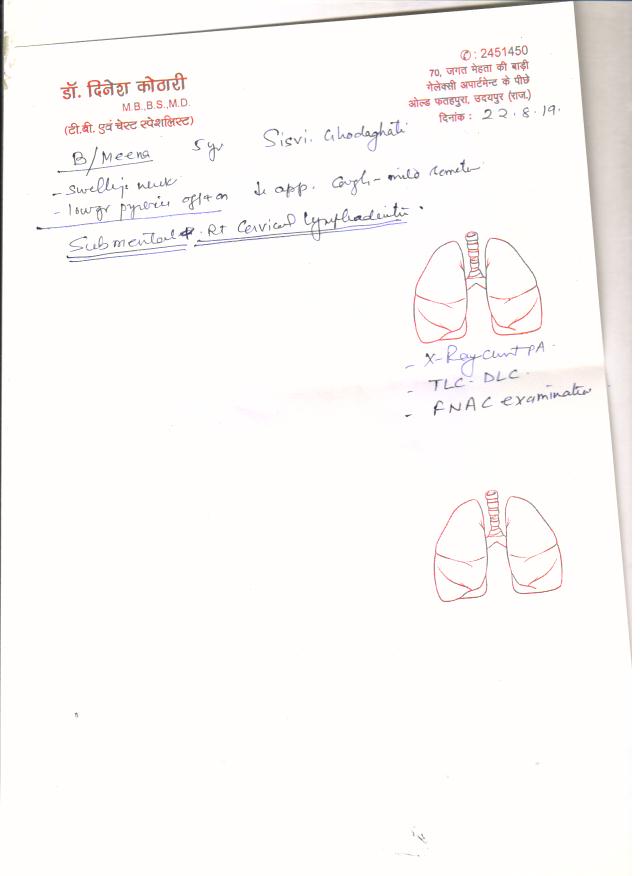 डॉ. दिनेश कोठारी
M.B.,B.S.,M.D.
(टी.बी. एवं चेस्ट स्पेशलिस्ट)
✆: 2451450
70, जगत मेहता की बाड़ी
गेलेक्सी अपार्टमेन्ट के पीछे
ओल्ड फतहपुरा, उदयपुर (राज.)
दिनांक : 22.8.19.
B/Meena 5yr Sisvi. Ghodaghati
- Swelling neck
- low gr pyrexia off + on ↓ app. Cough - mild
Submental & Rt Cervical lymphadenitis.
- X-Ray chest PA.
- TLC - DLC.
- FNAC examination